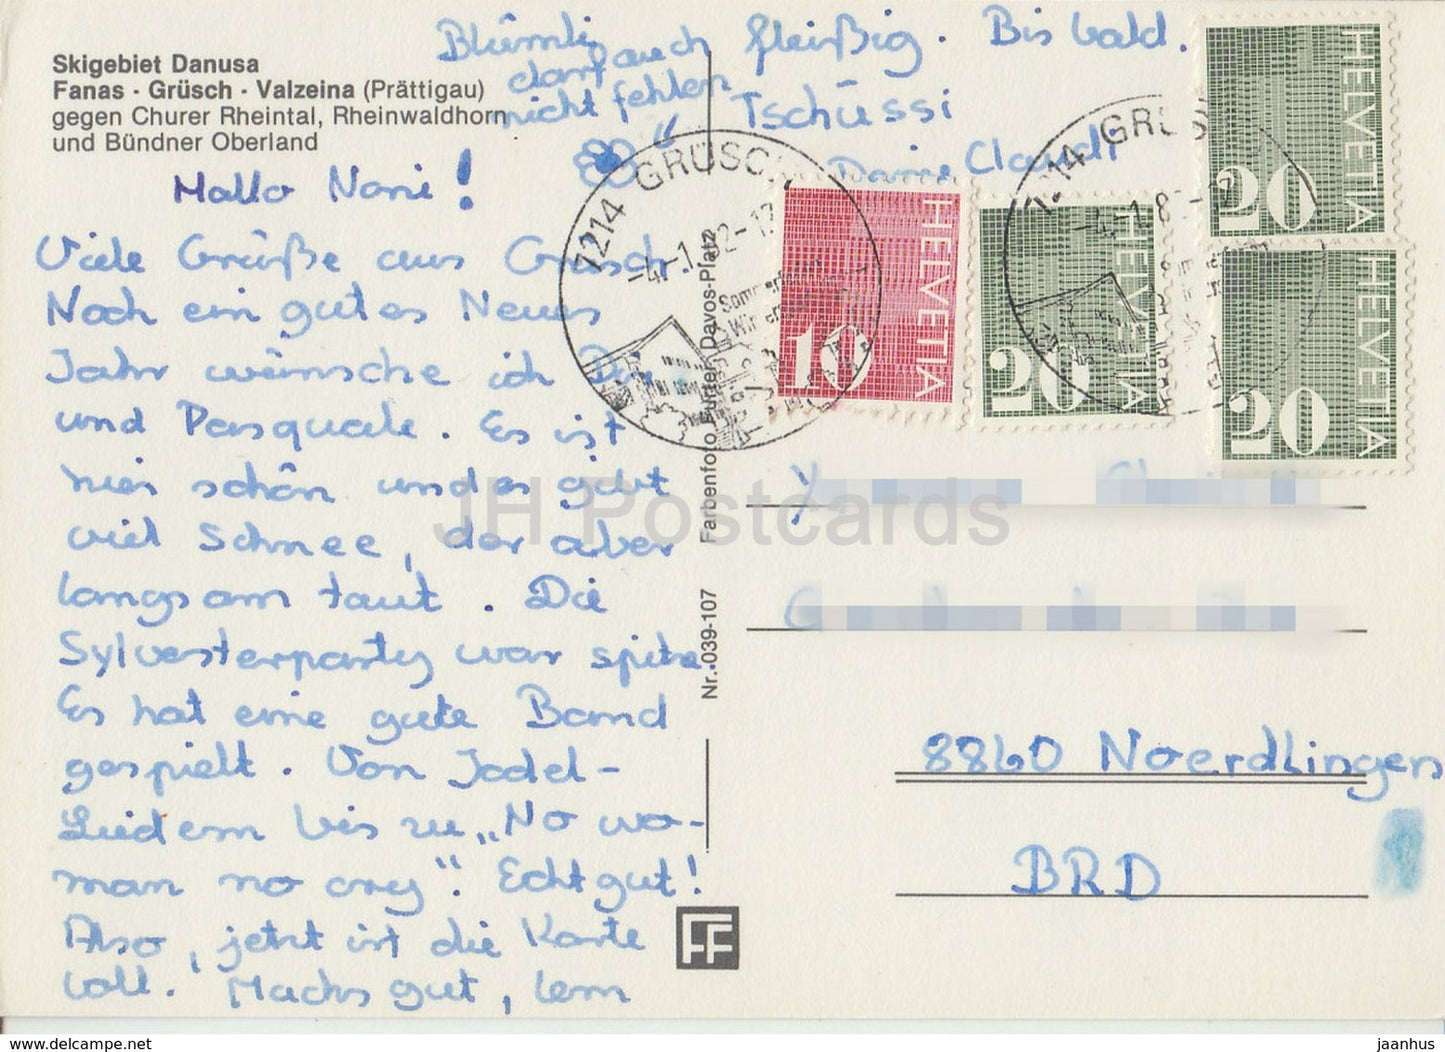 Skigebiet Danusa
Fanas · Grüsch · Valzeina (Prättigau)
gegen Churer Rheintal, Rheinwaldhorn
und Bündner Oberland
Hallo Nani!
Viele Grüße aus Grüsch.
Noch ein gutes Neues
Jahr wünsche ich Dir
und Pasquale. Es ist
hier schön und es gibt
viel Schnee, der aber
langsam taut. Die
Sylvesterparty war spitze.
Es hat eine gute Band
gespielt. Von Jodel-
Liedern bis zu „No wo-
man no cry“. Echt gut!
Also, jetzt ist die Karte
voll. Machs gut, lern
auch fleißig. Bis bald.
Tschüssi
Deine Claudi
Blümli
darf
nicht fehlen
7214 GRÜSCH
-4.-1.82-17
HELVETIA
10
HELVETIA
20
HELVETIA
20
HELVETIA
20
Nr. 039-107 Farbenfoto Furter, Davos-Platz
8860 Noerdlingen
BRD
FF
JH Postcards
www.delcampe.net
jaanhus